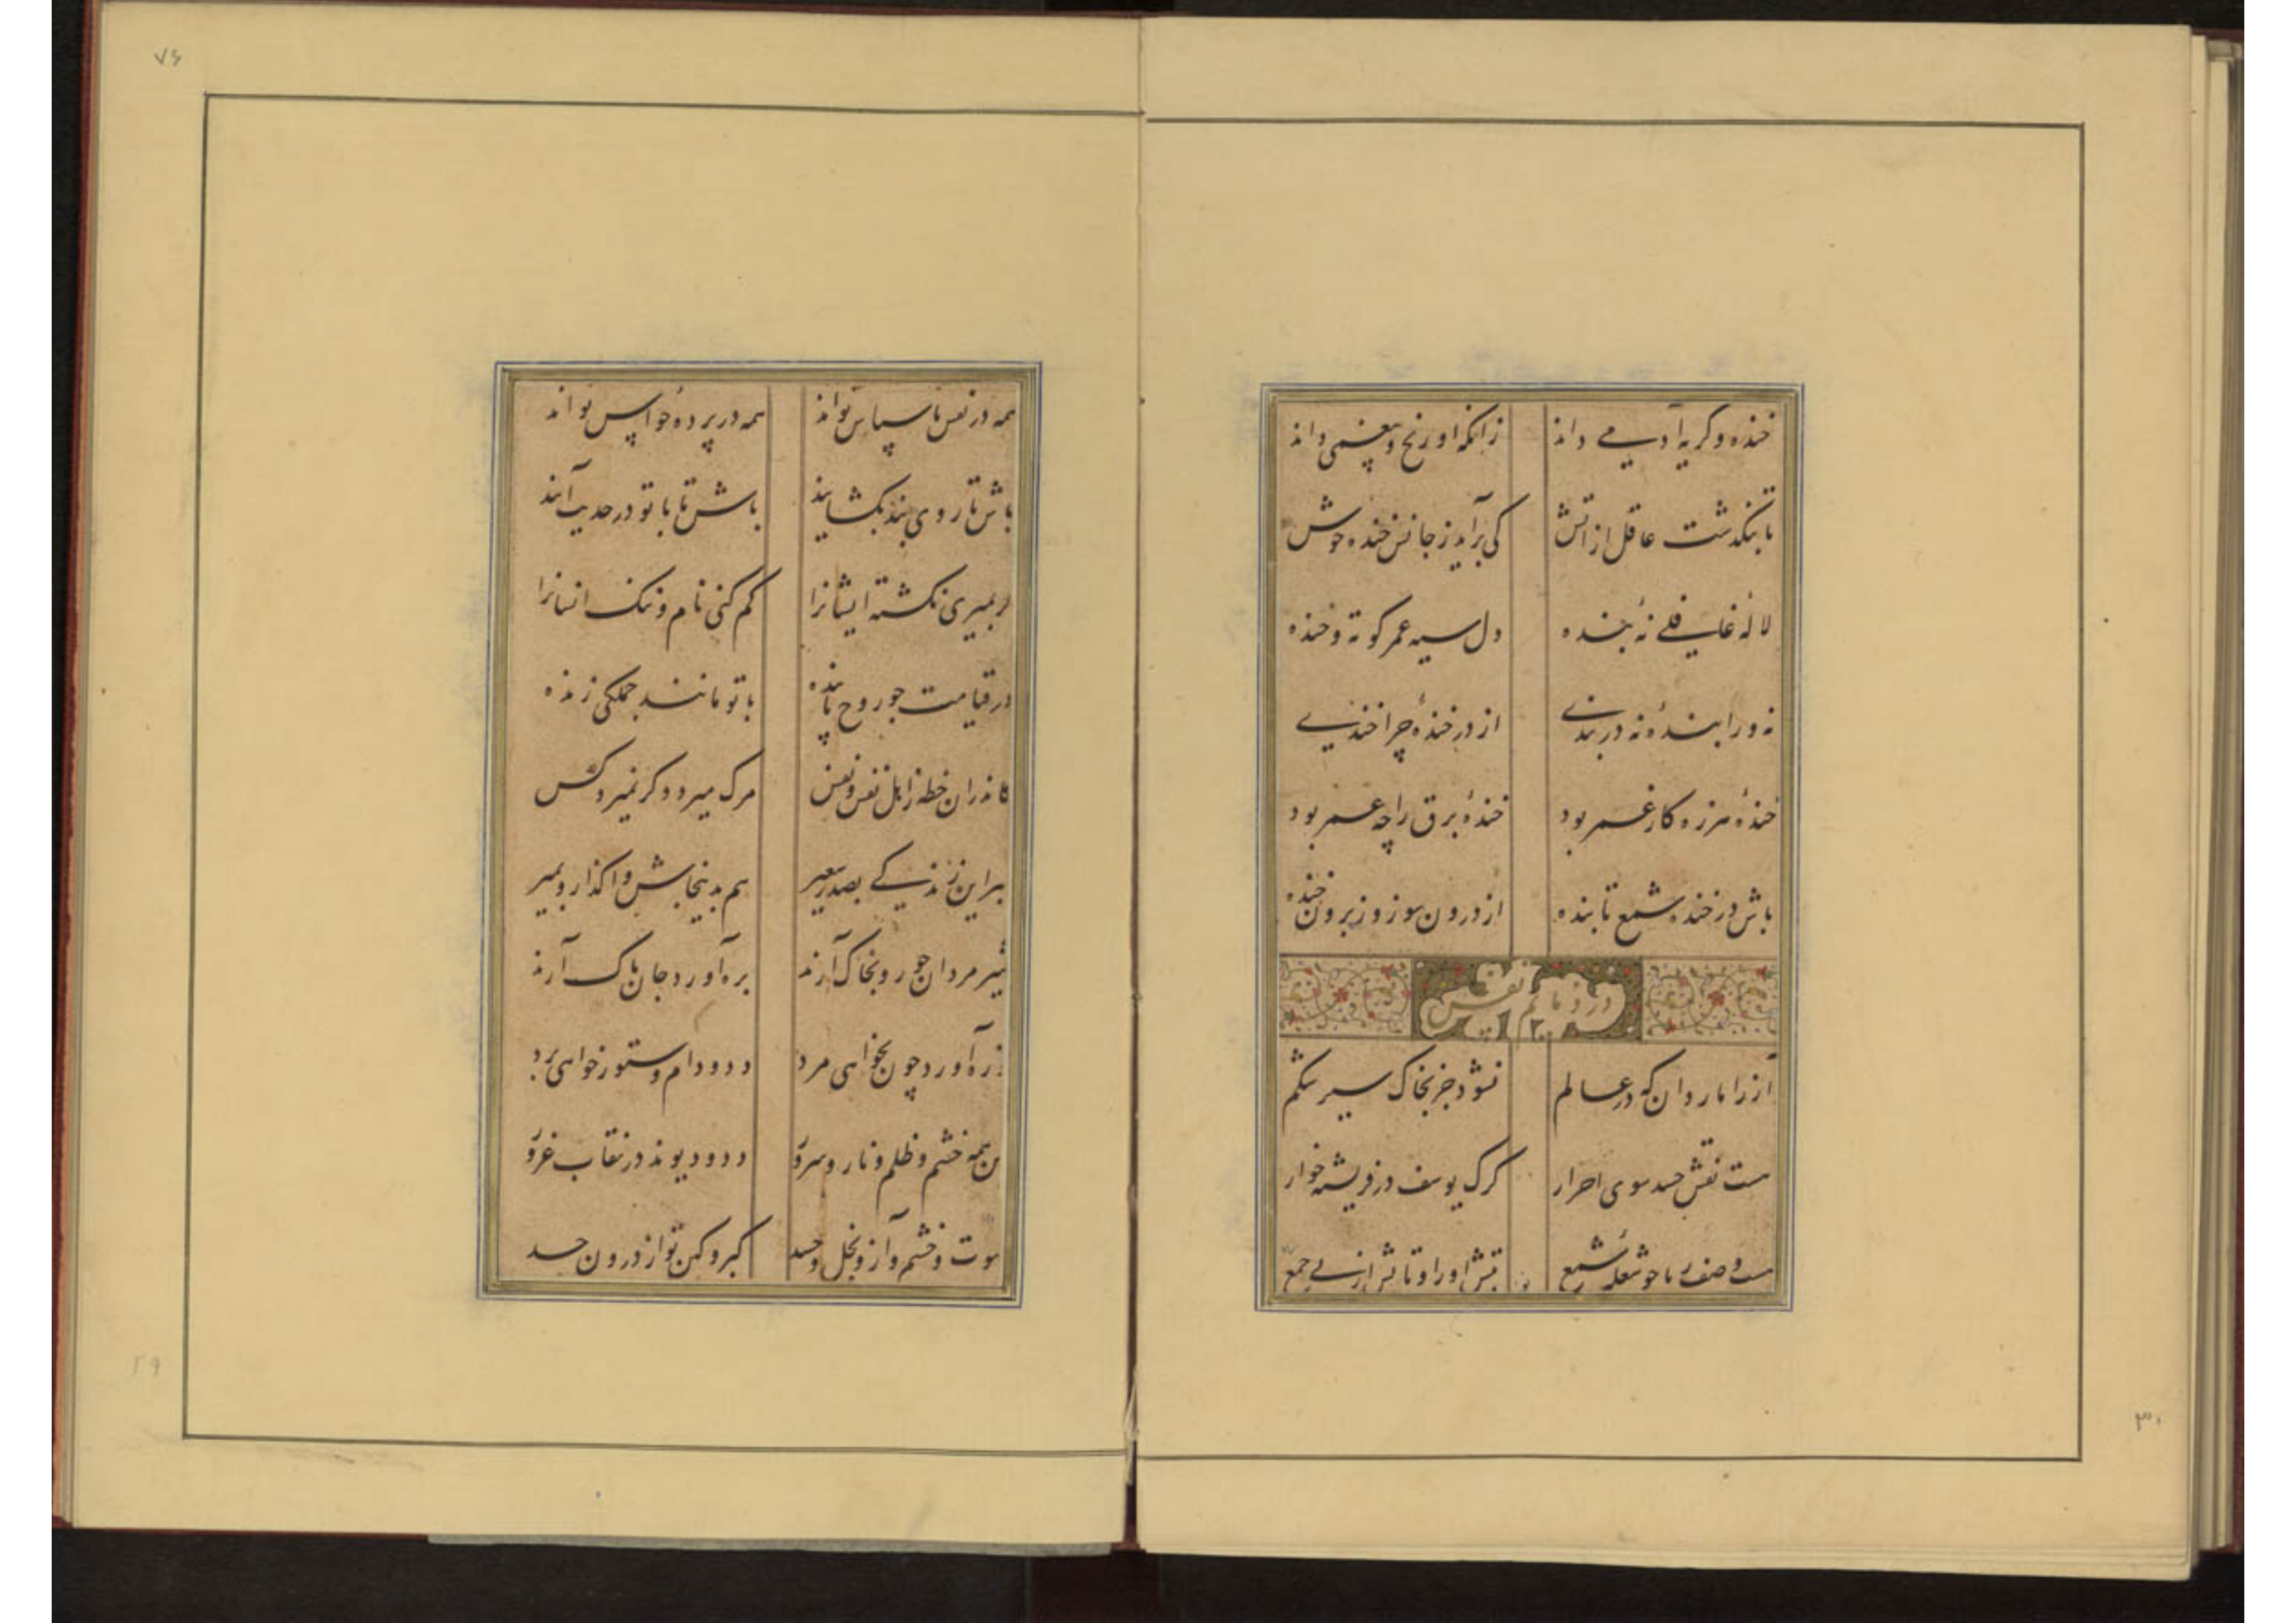 خنده و گریه آدمی داند زانکه او رنج و بیغمی داند
تا بنگذشت عاقل از آتش کی برآید ز جانش خنده خوش
لاله غافلی نه بنده دل سیه عمر کوته و خنده
نه و را بنده نه در بندی از در خنده چرا خندی
خنده هرزه کار غمر بود خنده برق را چه عمر بود
باش در خنده شمع تابنده از درون سوز و ز برون خنده
در ذمایم نفس
آز را مار دان که در عالم نشود جز بخاک سیر شکم
هست نقش حسد سوی احرار گرگ یوسف در فریشته خوار
هست وصف ریا چو شعله شمع تبش او را و تابش از پی جمع
۷۶
همه در نفس ناسپاس تواند همه در پرده حواس تواند
باش تا روی بند بگشایند باش تا با تو در حدیث آیند
گر بمیری نکشته ایشانرا کم کنی نام و ننگ انسانرا
در قیامت چو روح پاینده با تو مانند جملگی زنده
کاندران خطه ز اهل نفس و نفس مرگ میرد دگر نمیرد کس
ببر این زندگی بصدر سعیر هم بدینجاش واگذار و بمیر
شیر مردان چو رو بخاک آرند بره آورد جان پاک آرند
ز ره آورد چون بخواهی مرد دد و دام و ستور خواهی برد
این همه خشم و ظلم و نار و سرور دد و دیوند در نقاب غرور
شهوت و خشم و آز و بخل و حسد کبر و کین تو از درون جسد
۲۹
۳۰